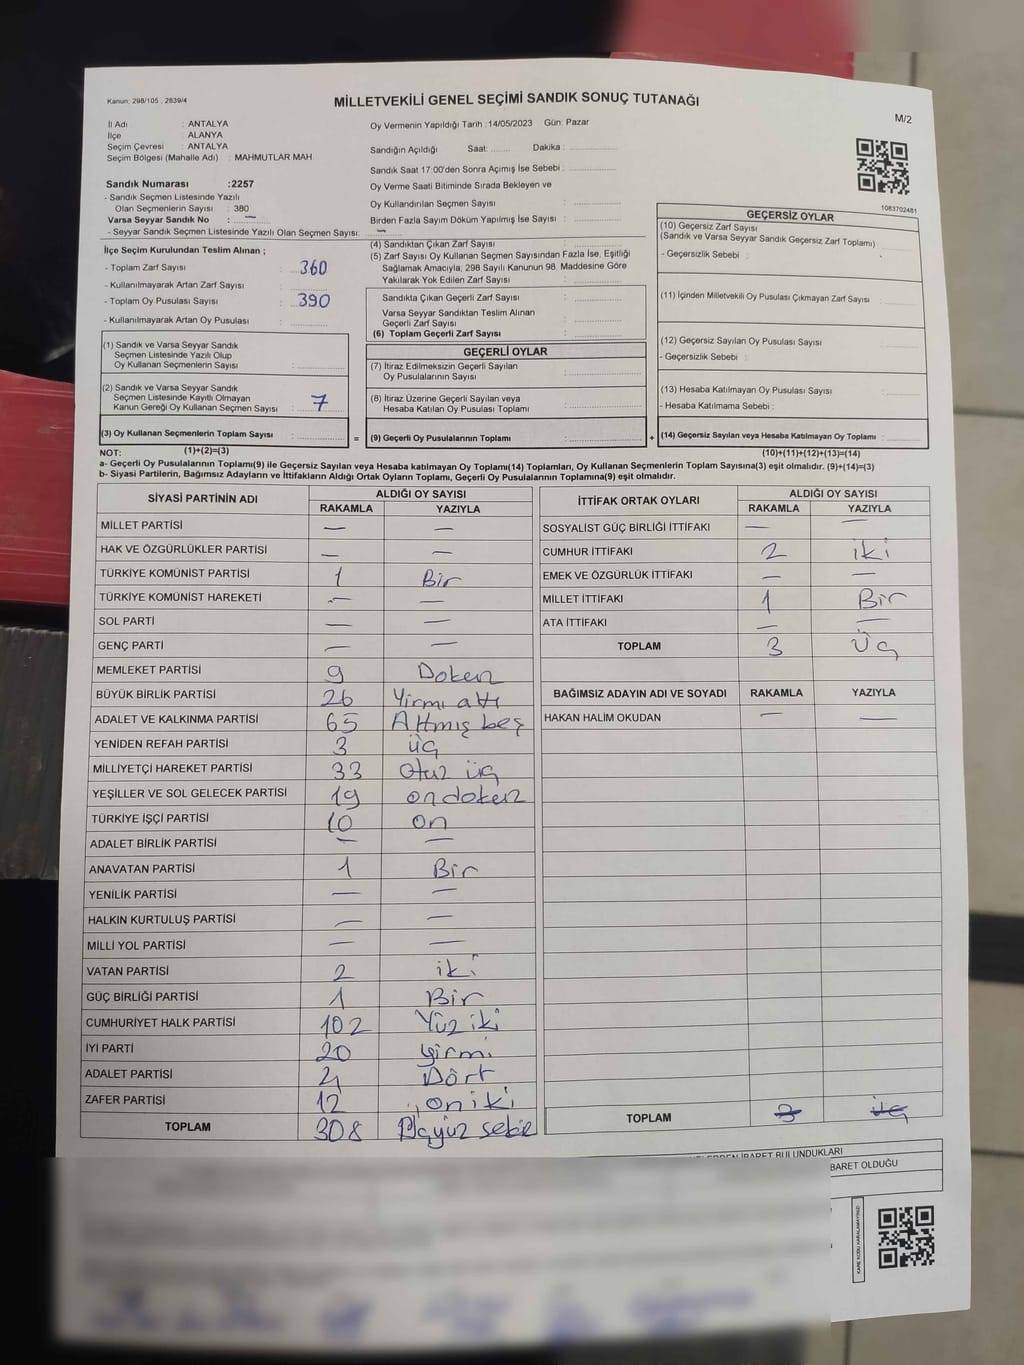 Kanun: 298/105 , 2839/4
MİLLETVEKİLİ GENEL SEÇİMİ SANDIK SONUÇ TUTANAĞI
M/2
İl Adı : ANTALYA
İlçe : ALANYA
Seçim Çevresi : ANTALYA
Seçim Bölgesi (Mahalle Adı) : MAHMUTLAR MAH
Sandık Numarası :2257
- Sandık Seçmen Listesinde Yazılı
Olan Seçmenlerin Sayısı : 380
Varsa Seyyar Sandık No : —
- Seyyar Sandık Seçmen Listesinde Yazılı Olan Seçmen Sayısı: —
Oy Vermenin Yapıldığı Tarih :14/05/2023 Gün: Pazar
Sandığın Açıldığı Saat: ........ Dakika : ................
Sandık Saat 17:00'den Sonra Açımış İse Sebebi : ................
Oy Verme Saati Bitiminde Sırada Bekleyen ve
Oy Kullandırılan Seçmen Sayısı : ................
Birden Fazla Sayım Döküm Yapılmış İse Sayısı : ................
1083702481
İlçe Seçim Kurulundan Teslim Alınan ;
- Toplam Zarf Sayısı : 360
- Kullanılmayarak Artan Zarf Sayısı : ............
- Toplam Oy Pusulası Sayısı : 390
- Kullanılmayarak Artan Oy Pusulası : ............
(1) Sandık ve Varsa Seyyar Sandık
Seçmen Listesinde Yazılı Olup
Oy Kullanan Seçmenlerin Sayısı : ............
(2) Sandık ve Varsa Seyyar Sandık
Seçmen Listesinde Kayıtlı Olmayan
Kanun Gereği Oy Kullanan Seçmen Sayısı : 7
(3) Oy Kullanan Seçmenlerin Toplam Sayısı : ............
(1)+(2)=(3)
(4) Sandıktan Çıkan Zarf Sayısı : ................
(5) Zarf Sayısı Oy Kullanan Seçmen Sayısından Fazla İse, Eşitliği
Sağlamak Amacıyla, 298 Sayılı Kanunun 98. Maddesine Göre
Yakılarak Yok Edilen Zarf Sayısı : ................
Sandıkta Çıkan Geçerli Zarf Sayısı : ................
Varsa Seyyar Sandıktan Teslim Alınan
Geçerli Zarf Sayısı : ................
(6) Toplam Geçerli Zarf Sayısı : ................
GEÇERLİ OYLAR
(7) İtiraz Edilmeksizin Geçerli Sayılan
Oy Pusulalarının Sayısı : ................
(8) İtiraz Üzerine Geçerli Sayılan veya
Hesaba Katılan Oy Pusulaları Toplamı : ................
= (9) Geçerli Oy Pusulalarının Toplamı : ................
GEÇERSİZ OYLAR
(10) Geçersiz Zarf Sayısı
(Sandık ve Varsa Seyyar Sandık Geçersiz Zarf Toplamı) : ............
- Geçersizlik Sebebi :
(11) İçinden Milletvekili Oy Pusulası Çıkmayan Zarf Sayısı : ............
(12) Geçersiz Sayılan Oy Pusulası Sayısı : ............
- Geçersizlik Sebebi :
(13) Hesaba Katılmayan Oy Pusulası Sayısı : ............
- Hesaba Katılmama Sebebi :
+ (14) Geçersiz Sayılan veya Hesaba Katılmayan Oy Toplamı : ............
(10)+(11)+(12)+(13)=(14)
NOT:
a- Geçerli Oy Pusulalarının Toplamı(9) ile Geçersiz Sayılan veya Hesaba katılmayan Oy Toplamı(14) Toplamları, Oy Kullanan Seçmenlerin Toplam Sayısına(3) eşit olmalıdır. (9)+(14)=(3)
b- Siyasi Partilerin, Bağımsız Adayların ve İttifakların Aldığı Ortak Oyların Toplamı, Geçerli Oy Pusulalarının Toplamına(9) eşit olmalıdır.
SİYASİ PARTİNİN ADI ALDIĞI OY SAYISI
RAKAMLA YAZIYLA
MİLLET PARTİSİ — —
HAK VE ÖZGÜRLÜKLER PARTİSİ — —
TÜRKİYE KOMÜNİST PARTİSİ 1 Bir
TÜRKİYE KOMÜNİST HAREKETİ — —
SOL PARTİ — —
GENÇ PARTİ — —
MEMLEKET PARTİSİ 9 Dokuz
BÜYÜK BİRLİK PARTİSİ 26 Yirmi altı
ADALET VE KALKINMA PARTİSİ 65 Altmış beş
YENİDEN REFAH PARTİSİ 3 üç
MİLLİYETÇİ HAREKET PARTİSİ 33 Otuz üç
YEŞİLLER VE SOL GELECEK PARTİSİ 19 on dokuz
TÜRKİYE İŞÇİ PARTİSİ 10 on
ADALET BİRLİK PARTİSİ — —
ANAVATAN PARTİSİ 1 Bir
YENİLİK PARTİSİ — —
HALKIN KURTULUŞ PARTİSİ — —
MİLLİ YOL PARTİSİ — —
VATAN PARTİSİ 2 iki
GÜÇ BİRLİĞİ PARTİSİ 1 Bir
CUMHURİYET HALK PARTİSİ 102 Yüz iki
İYİ PARTİ 20 yirmi
ADALET PARTİSİ 4 Dört
ZAFER PARTİSİ 12 on iki
TOPLAM 308 Üçyüz sekiz
İTTİFAK ORTAK OYLARI ALDIĞI OY SAYISI
RAKAMLA YAZIYLA
SOSYALİST GÜÇ BİRLİĞİ İTTİFAKI — —
CUMHUR İTTİFAKI 2 iki
EMEK VE ÖZGÜRLÜK İTTİFAKI — —
MİLLET İTTİFAKI 1 Bir
ATA İTTİFAKI — —
TOPLAM 3 Üç
BAĞIMSIZ ADAYIN ADI VE SOYADI RAKAMLA YAZIYLA
HAKAN HALİM OKUDAN — —
TOPLAM 3 üç
İBARET BULUNDUKLARI
BARET OLDUĞU
KARE KODU KARALAMAYINIZ!